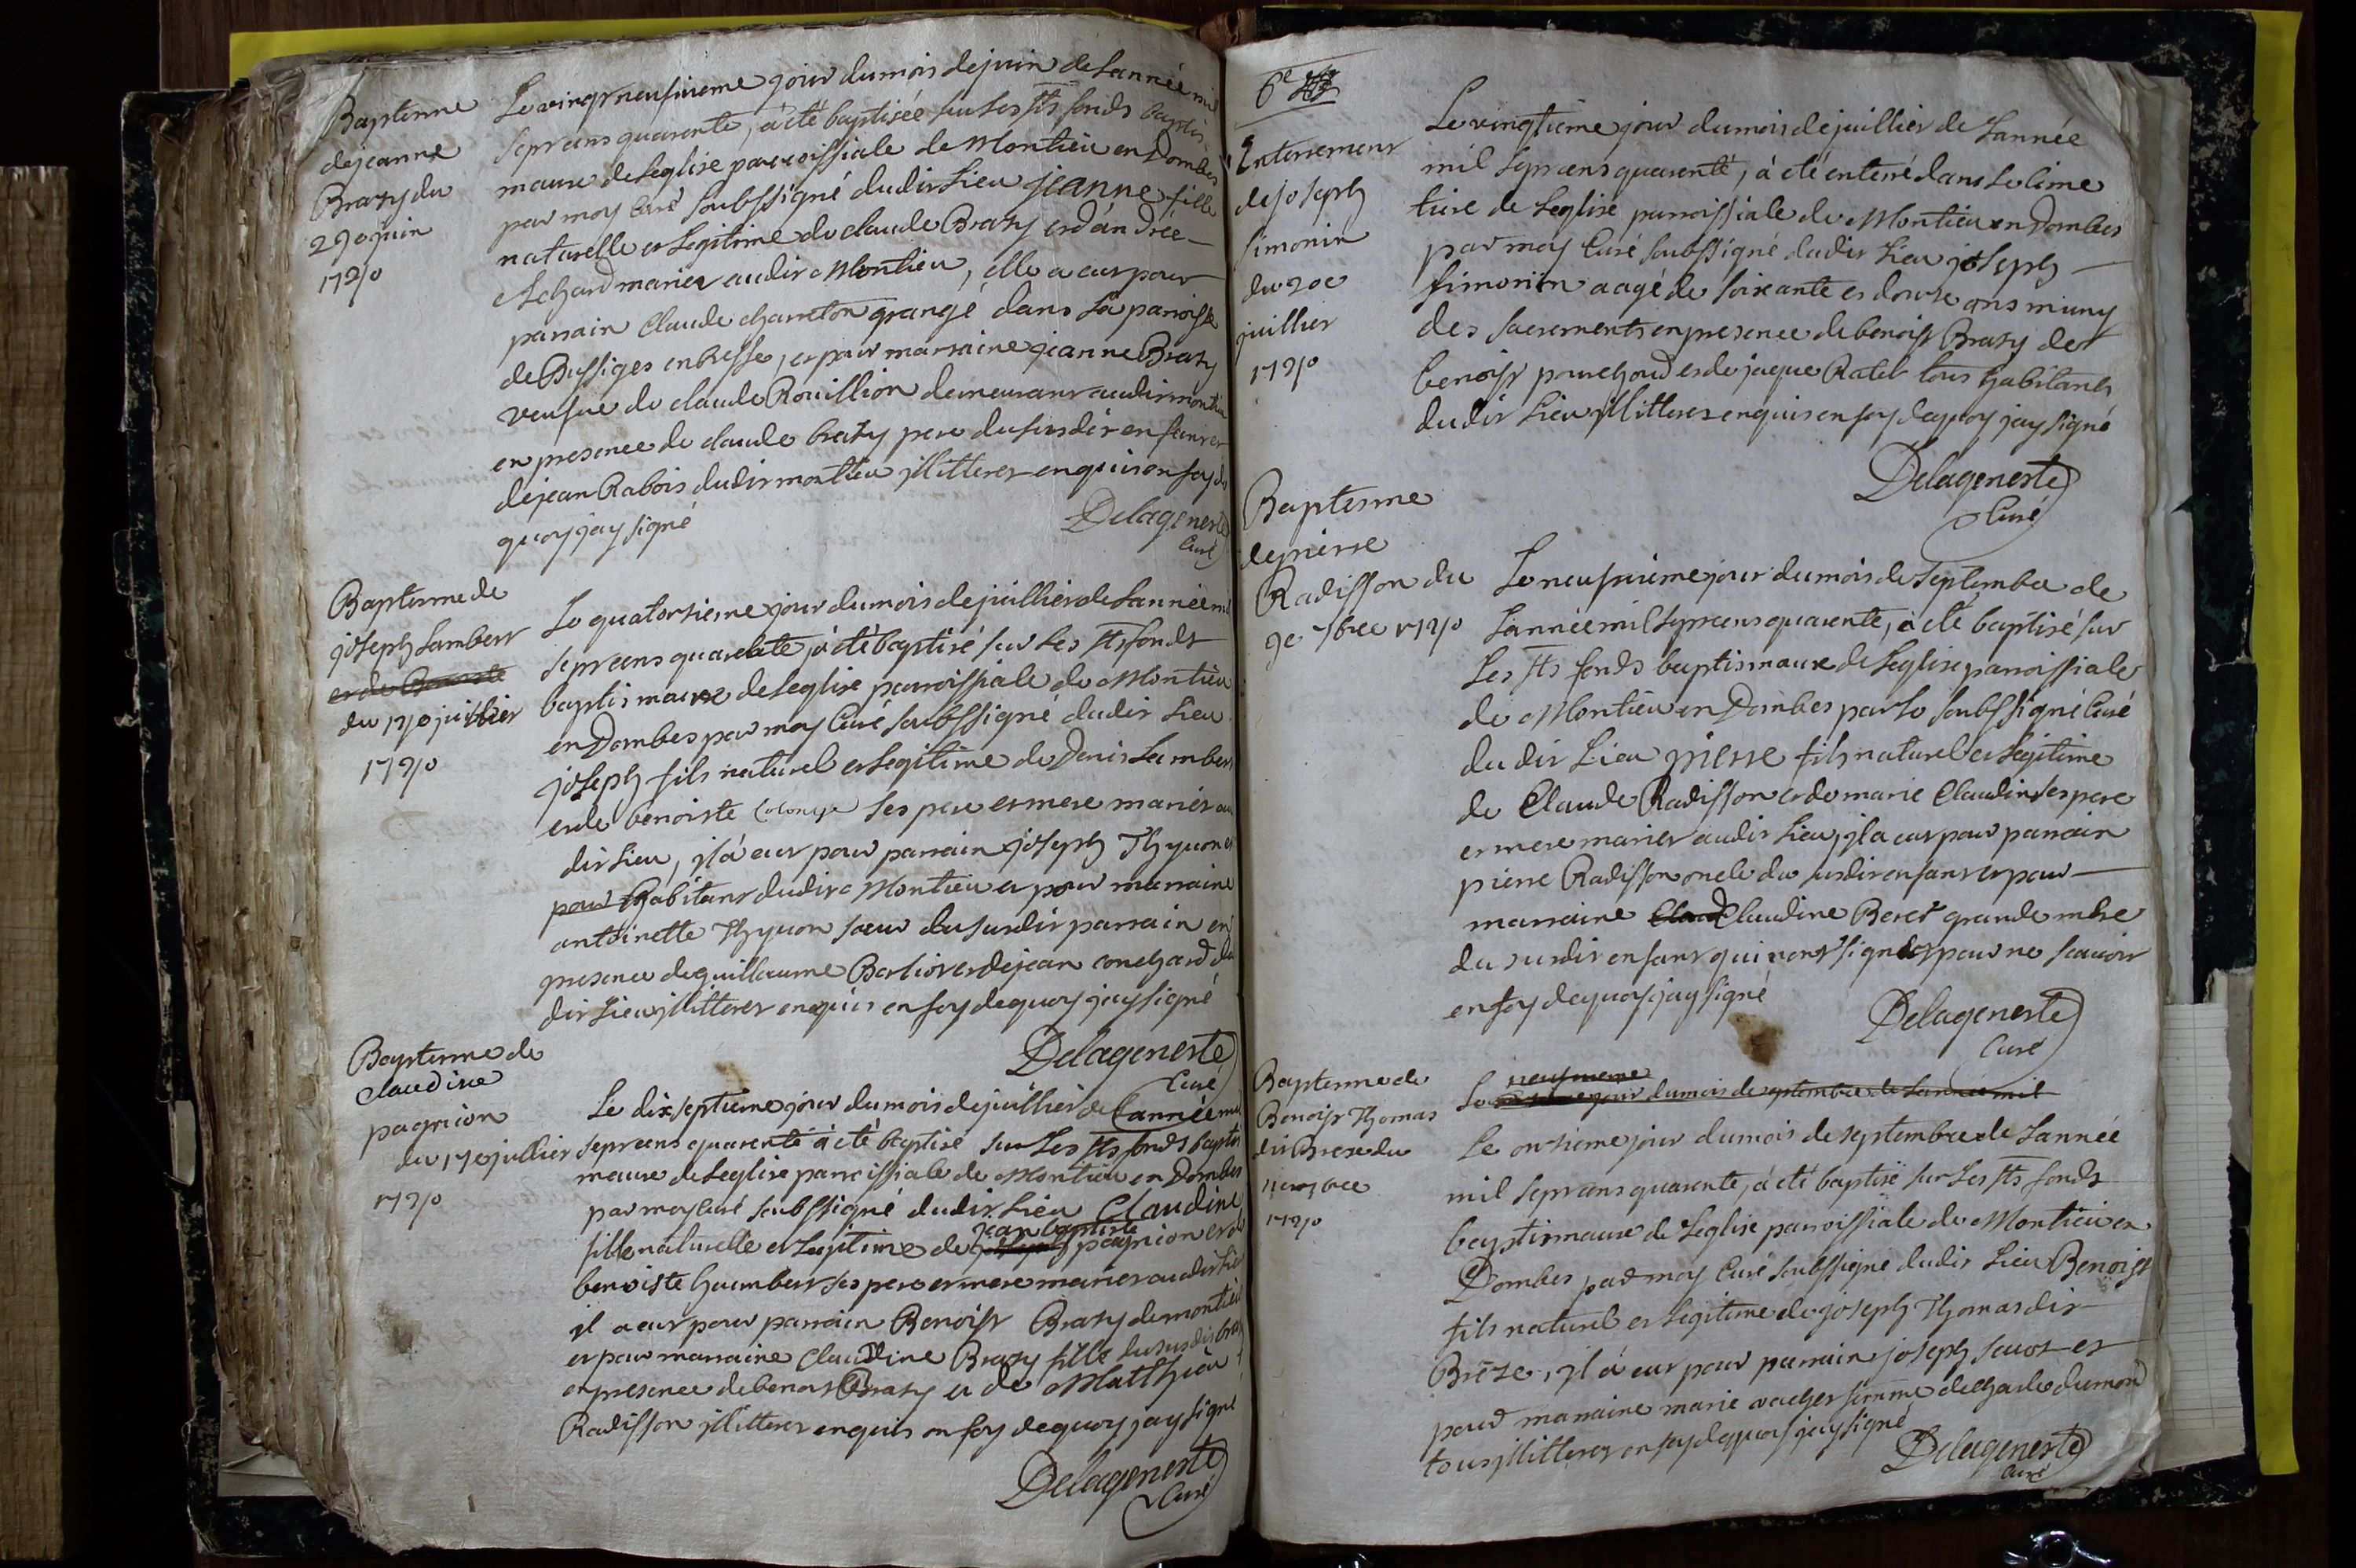 Baptesme
de jeanne
Brazy du
29e juin
1740
Le vingt neufvieme jour du mois de juin de Lannée mil
sept cens quarente, à été baptisée sur Les sts fonds baptis
maux de Leglise parroissiale de Montieu en Dombes
par moy curé soubssigné dudit Lieu jeanne fille
naturelle et Legitime de claude Brazy et d'andrée
Achard mariez audit Montieu, elle a eut pour
parrain Claude charreton grangé dans La parroisse
de Bussiges en bresse, et pour marraine jeanne Brazy
veufve de claude Rouillion demeurant audit montieu
en presence de claude brazy pere du susdit enfant et
de jean Rabois dudit montieu jllitterez enquis en foy de
quoy jay signé
Delageneste
Curé
Baptesme de
joseph Lambert
et de Benoiste
du 14e juillier
1740
Le quatorzieme jour du mois de juillier de Lannée mil
sept cens quarente à été baptisé sur Les sts fonds
baptismaux de Leglise parroissiale de Montieu
en Dombes par moy Curé soubssigné dudit Lieu
joseph fils naturel et Legitime de Denis Lambert
et de benoiste Colonge ses pere et mere mariez au
dit Lieu, jl a eut pour parrain joseph Thyvon et
pour habitant dudit Montieu et pour marraine
antoinette Thyvon soeur du susdit parrain en
presence de guillaume Berlior et de jean conchard du
dit Lieu jllitterez enquis en foy de quoy jay signé
Delageneste
Curé
Baptesme de
claudine
pagnion
du 17e juillier
1740
Le dix septieme jour du mois de juillier de Lannée mil
sept cens quarente à été baptisé sur Les sts fonds baptis
maux de Leglise parroissiale de Montieu en Dombes
par moy curé soubssigné dudit Lieu Claudine
jean baptiste
fille naturelle et Legitime de joseph pagnion et de
benoiste humbert ses pere et mere mariez audit Lieu
jl a eut pour parrain Benoist Brazy de montieu
et pour marraine Claudine Brazy fille du susdit brazy
en presence de benoist Brazy et de Matthieu
Radisson jllitterez enquis en foy de quoy jay signé
Delageneste
Curé
6e
Enterrement
de joseph
simonin
du 20e
juillier
1740
Le vingtieme jour du mois de juillier de Lannée
mil sept cens quarente, à été enterré dans Le cime
tiere de Leglise parroissiale de Montieu en Dombes
par moy Curé soubssigné dudit Lieu joseph
simonin aagé de soixante et douze ans muny
des sacrements en presence de benoist Brazy de
benoist pourchoud et de jaque Ratel tous habitants
dudit Lieu jllitterez enquis en foy dequoy jay signé
Delageneste
Curé
Baptesme
de pierre
Radisson du
9e 7bre 1740
Le neufvieme jour du mois de septembre de
Lannée mil sept cens quarente, à été baptisé sur
Les sts fonds baptismaux de Leglise parroissiale
de Montieu en Dombes par Le soubssigné Curé
du dit Lieu pierre fils naturel et Legitime
de Claude Radisson et de marie Claudin ses pere
et mere mariez audit Lieu, jl a eut pour parrain
pierre Radisson oncle du susdit enfant et pour
marraine Claud Claudine Beret grande mere
du susdit enfant qui nont signez pour ne scavoir
en foy dequoy jay signé
Delageneste
Curé
Baptesme de
Benoist Thomas
dit Breze du
11e 7bre
1740
neufvieme
Le jour du mois de septembre de Lannée mil
Le onzieme jour du mois de septembre de Lannée
mil sept cens quarente, à été baptisé sur Les sts fonds
baptismaux de Leglise parroissiale de Montieu en
Dombes par moy Curé soubssigné dudit Lieu Benoist
fils naturel et Legitime de joseph Thomas dit
Breze, jl a eut pour parrain joseph savot et
pour marraine marie vacher femme de charle dumond
tous jllitterez en foy dequoy jay signé
Delageneste
Curé